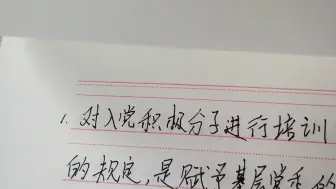 1. 对入党积极分子进行培训
的规定,是赋予基层党委